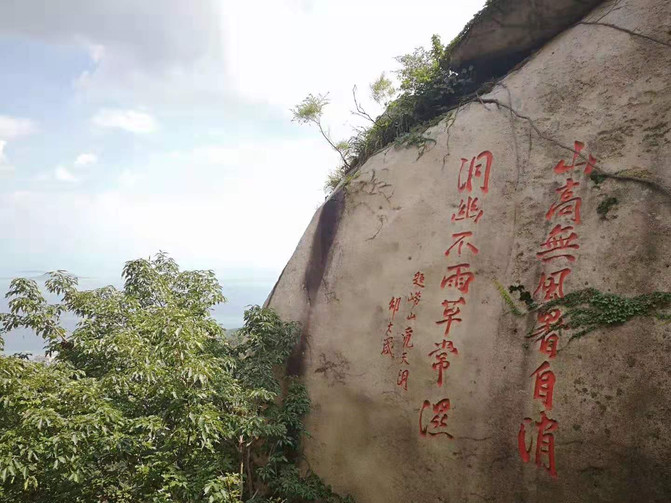 山高無風暑自消
洞幽不雨草常濕
題嶗山覔天洞
邹大盛